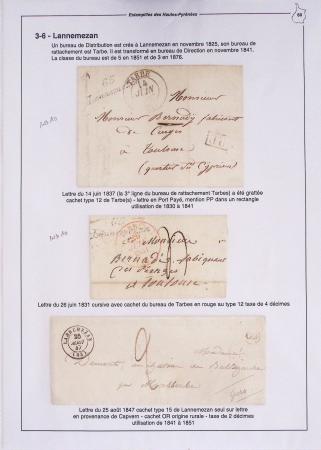 Estampilles des Hautes-Pyrénées
3-6 - Lannemezan
Un bureau de Distribution est crée à Lannemezan en novembre 1825, son bureau de
rattachement est Tarbe. Il est transformé en bureau de Direction en novembre 1841.
La classe du bureau est de 5 en 1851 et de 3 en 1876.
65
Lannemezan
TARBE
14
JUIN
PP
Monsieur
Monsieur Bernady fabricant
de Cierges
à Toulouse
(quartier St Cyprien)
Lettre du 14 juin 1837 (la 3° ligne du bureau de rattachement Tarbes) a été grattée
cachet type 12 de Tarbe(s) - lettre en Port Payé, mention PP dans un rectangle
utilisation de 1830 à 1841
Monsieur
Bernady fabiquant
à Toulouse
Lettre du 26 juin 1831 cursive avec cachet du bureau de Tarbes en rouge au type 12 taxe de 4 décimes
LANNEMEZAN
25
AOUT
47
(65)
2
Gers
Lettre du 25 août 1847 cachet type 15 de Lannemezan seul sur lettre
en provenance de Capvern - cachet OR origine rurale - taxe de 2 décimes
utilisation de 1841 à 1851